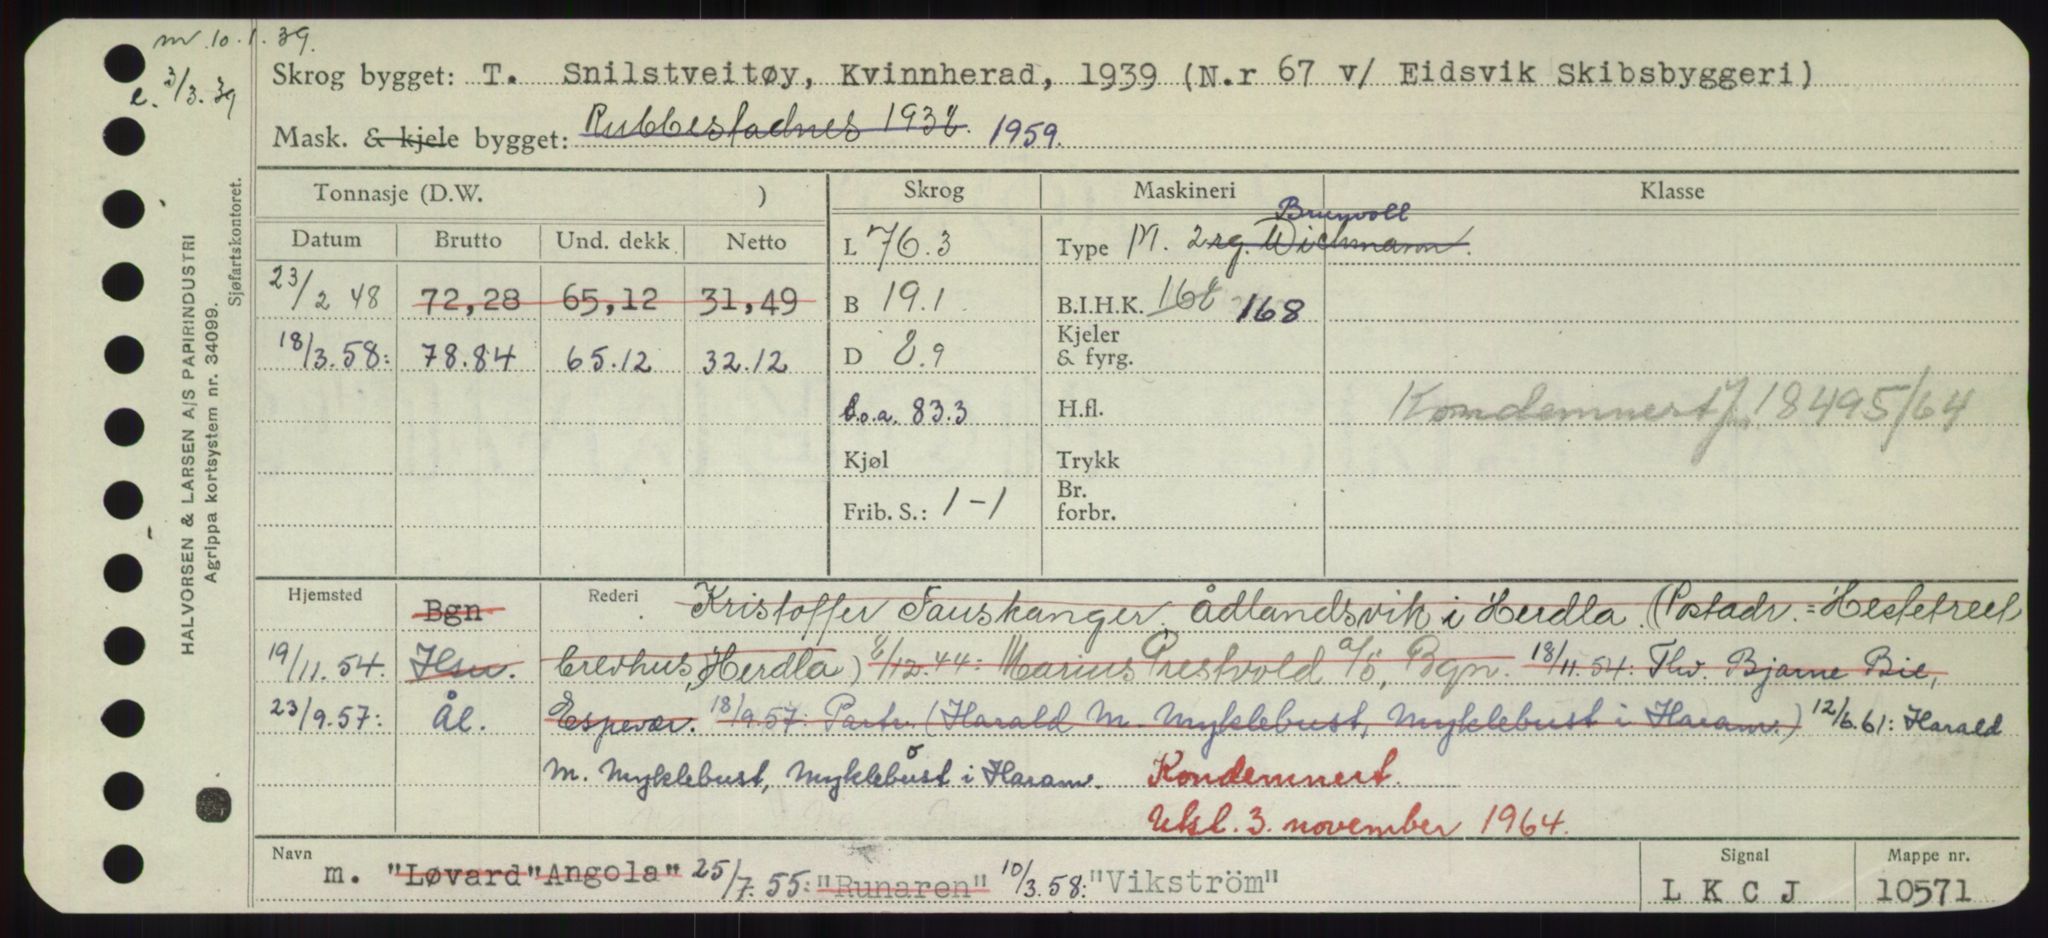 m 10.1.39.
e. 3/3.39
Skrog bygget: T. Snilstveitøy, Kvinnherad, 1939 (N.r 67 v/ Eidsvik Skibsbyggeri)
Mask. & kjele bygget: Rubbestadnes 1938. 1959.
Tonnasje (D.W. )
Skrog
Maskineri
Klasse
Datum Brutto Und. dekk Netto
23/2 48 72,28 65,12 31,49
18/3.58: 78.84 65.12 32.12
L 76.3
B 19.1
D 8.9
L.o.a. 83.3
Kjøl
Frib. S.: 1-1
Brunvoll
Type M. 2 sg. Wichmann.
B.I.H.K. 168 168
Kjeler
& fyrg.
H.fl.
Trykk
Br.
forbr.
Kondemnert Jnr. 18495/64
Hjemsted Bgn Rederi Kristoffer Fauskanger, Ådlandsvik i Herdla. (Postadr. = Hestetreet
19/11.54. Hsu. Brevhus, Herdla) 8/12.44: Marius Prestvold a/s, Bgn. 18/11.54: Thv. Bjarne Bie,
23/9.57: Ål. Espevær. 18/9.57: Partr. (Harald M. Myklebust, Myklebust i Haram.) 12/6.61: Harald
M. Myklebust, Myklebost i Haram. Kondemnert.
Utsl. 3. november 1964.
Navn m. "Løvard" "Angola" 25/7.55: "Runaren" 10/3.58: "Vikström"
Signal
L K C J
Mappe nr.
10571
HALVORSEN & LARSEN A/S PAPIRINDUSTRI
Agrippa kortsystem nr. 34099.
Sjøfartskontoret.